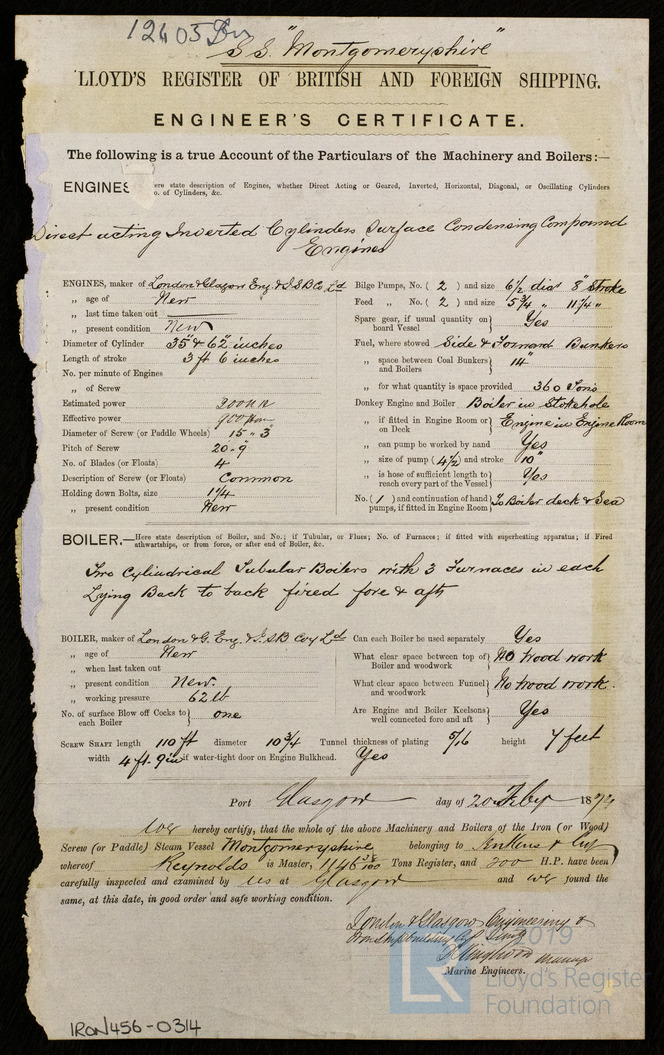 12405 Iron
S.S. "Montgomeryshire"
LLOYD'S REGISTER OF BRITISH AND FOREIGN SHIPPING.
ENGINEER'S CERTIFICATE.
The following is a true Account of the Particulars of the Machinery and Boilers:—
ENGINES ere state description of Engines, whether Direct Acting or Geared, Inverted, Horizontal, Diagonal, or Oscillating Cylinders
o. of Cylinders, &c.
Direct acting Inverted Cylinders Surface Condensing Compound
Engines
ENGINES, maker of London & Glasgow Eng. & I.S.B Co Ld
„ age of New
„ last time taken out
„ present condition New
Diameter of Cylinder 35" & 62" inches
Length of stroke 3 ft 6 inches
No. per minute of Engines
„ of Screw
Estimated power 200
Effective power 900
Diameter of Screw (or Paddle Wheels) 15 " 3
Pitch of Screw 20 - 9
No. of Blades (or Floats) 4
Description of Screw (or Floats) Common
Holding down Bolts, size 1 1/4
„ present condition New
Bilge Pumps, No. ( 2 ) and size 6 1/2 dia 8" stroke
Feed „ No. ( 2 ) and size 5 3/4 „ 11 1/4 "
Spare gear, if usual quantity on board Vessel } Yes
Fuel, where stowed Side & Forward Bunkers
„ space between Coal Bunkers and Boilers } 14"
„ for what quantity is space provided 360 Tons
Donkey Engine and Boiler Boiler in Stokehole
„ if fitted in Engine Room or on Deck } Engine in Engine Room
„ can pump be worked by hand Yes
„ size of pump ( 4 1/2 ) and stroke 10"
„ is hose of sufficient length to reach every part of the Vessel } Yes
No. ( 1 ) and continuation of hand pumps, if fitted in Engine Room } To Boiler deck & Sea
BOILER.—Here state description of Boiler, and No.; if Tubular, or Flues; No. of Furnaces; if fitted with superheating apparatus; if Fired
athwartships, or from force, or after end of Boiler, &c.
Two Cylindrical Tubular Boilers with 3 Furnaces in each
Lying Back to back fired fore & aft
BOILER, maker of London & G. Eng. & I.S.B Coy Ld
„ age of New
„ when last taken out
„ present condition New.
„ working pressure 62 lb
No. of surface Blow off Cocks to each Boiler } one
Can each Boiler be used separately Yes
What clear space between top of Boiler and woodwork } No wood work
What clear space between Funnel and woodwork } No wood work.
Are Engine and Boiler Keelsons well connected fore and aft } Yes
SCREW SHAFT length 110 ft diameter 10 3/4 Tunnel thickness of plating 5/16 height 7 feet
width 4 ft. 9in if water-tight door on Engine Bulkhead. Yes
Port Glasgow day of 20 Feby 1874
We hereby certify, that the whole of the above Machinery and Boilers of the Iron (or Wood)
Screw (or Paddle) Steam Vessel Montgomeryshire belonging to Jenkins & Coy
whereof Reynolds is Master, 1146 38/100 Tons Register, and 200 H.P. have been
carefully inspected and examined by us at Glasgow and we found the
same, at this date, in good order and safe working condition.
London & Glasgow Engineering &
Iron Shipbuilding Coy Limd
Manager
Marine Engineers.
2019
LR
Lloyd's Register
Foundation
IRON456-0314